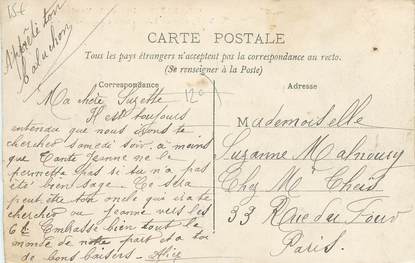 15€
Apprête ton
baluchon
CARTE POSTALE
Tous les pays étrangers n'acceptent pas la correspondance au recto.
(Se renseigner à la Poste)
Correspondance
Adresse
Ma chère Suzette
Il est toujours
entendu que nous irons te
chercher samedi soir. à moins
que Tante Jeanne ne le
permette pas si tu n'a pas
été bien sage. Ce sera
peut être ton oncle qui ira te
chercher ou Jeanne vers les
6h Embrasse bien tout le
monde de notre part et à toi
de bons baisers. Alice
Mademoiselle
Suzanne
Chez Mr
33 Rue du Four
Paris.